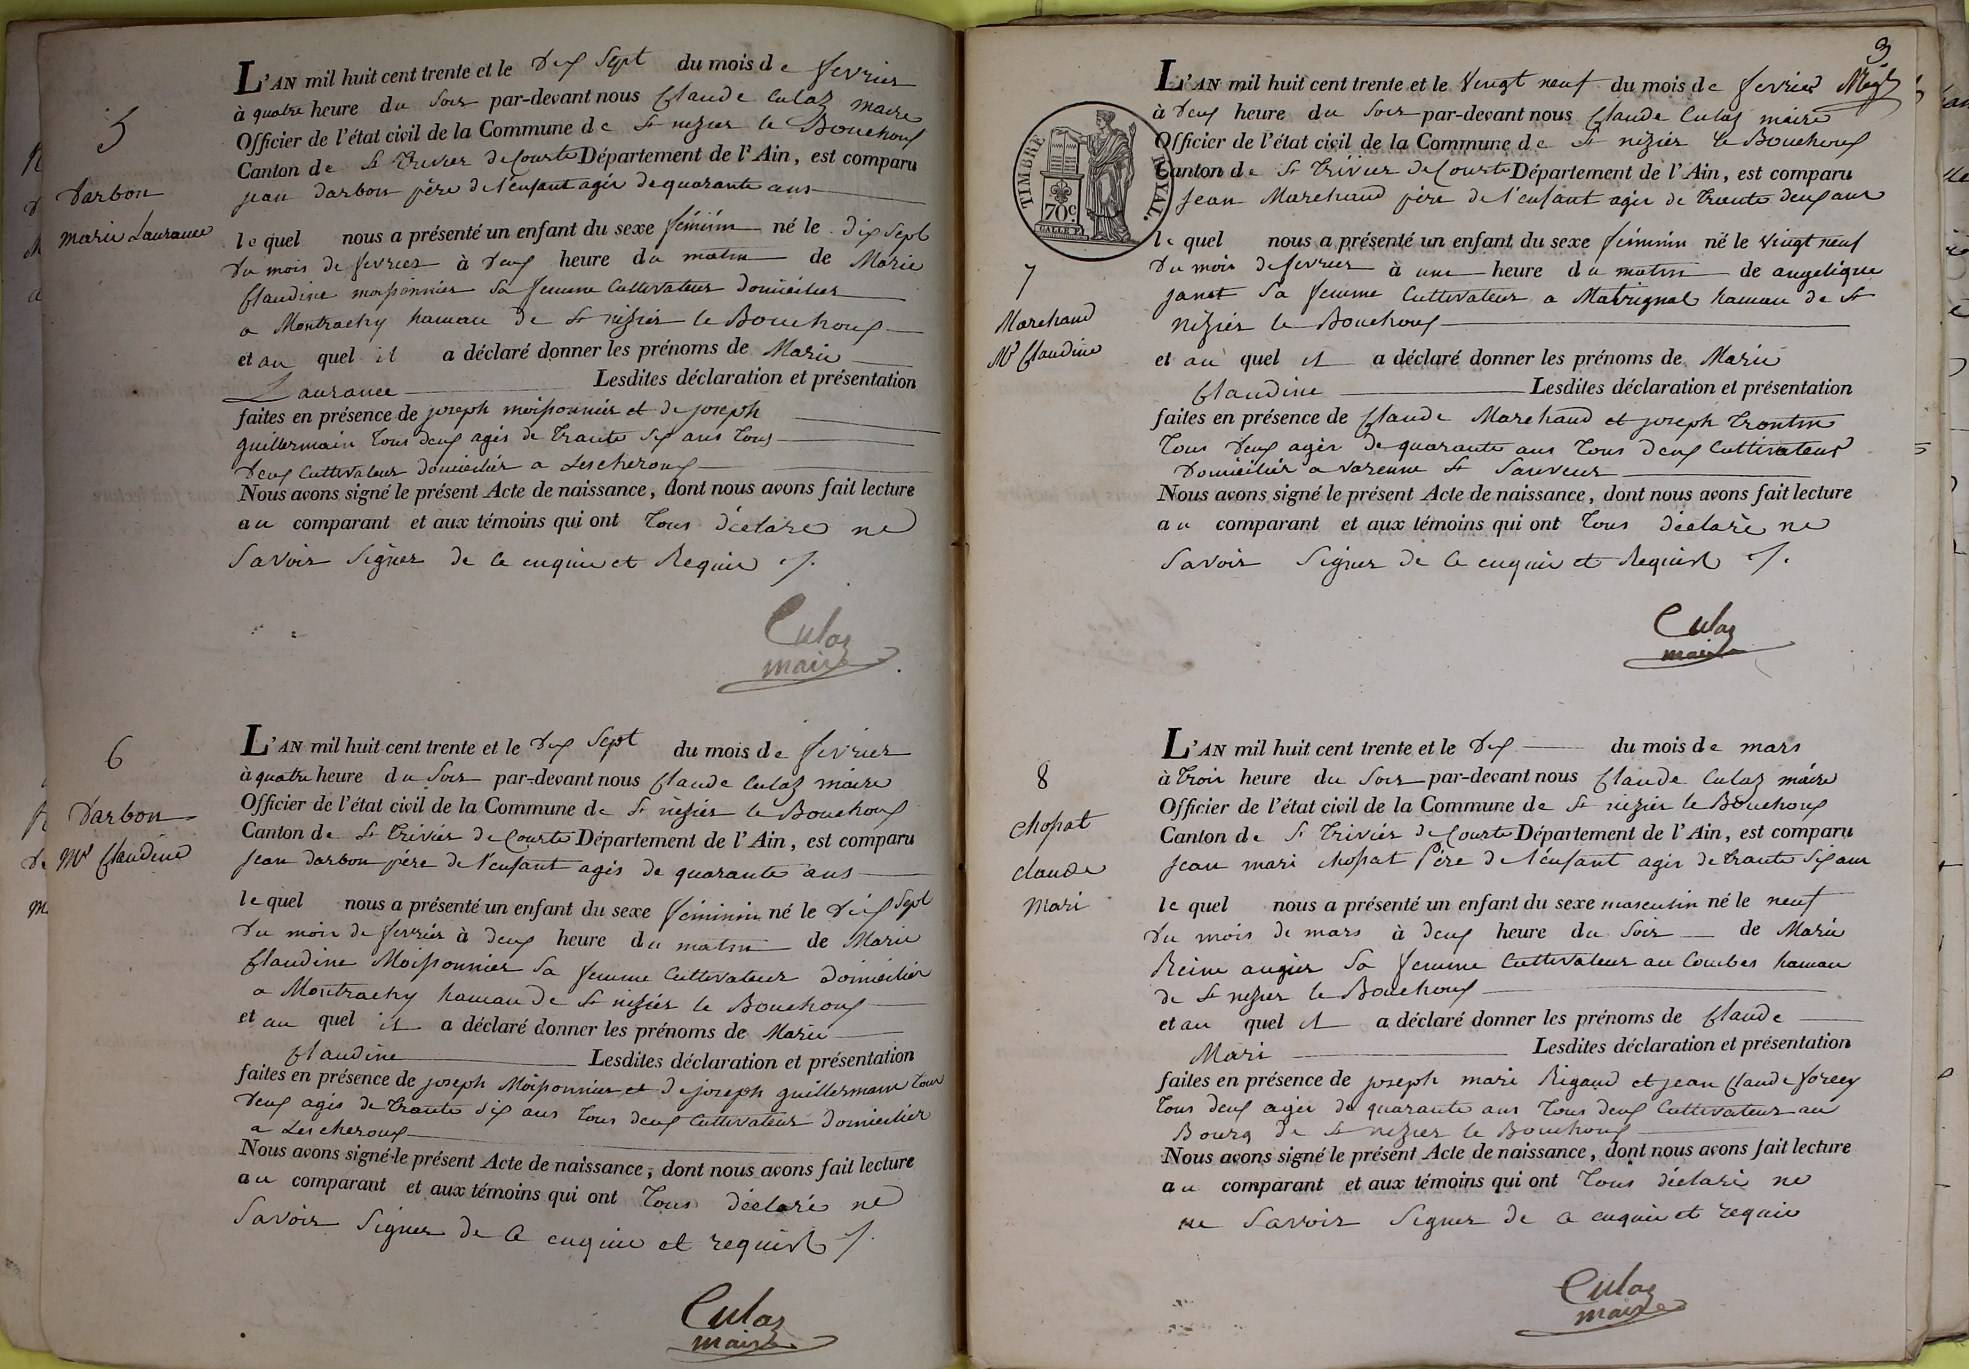 5
Darbon
Marie Laurance
L'AN mil huit cent trente et le dix sept du mois de fevrier
à quatre heure du soir par-devant nous Claude Culaz maire
Officier de l'état civil de la Commune de St nizier le Bouchoux
Canton de St Trivier de Courte Département de l'Ain, est comparu
jean darbon père de l'enfant agér de quarante ans
le quel nous a présenté un enfant du sexe féminin né le dix sept
du mois de fevrier à deux heure du matin de Marie
Claudine moissonnier sa femme Cultivateur domicilier
a Montrachy hamau de St nizier le Bouchoux
et au quel il a déclaré donner les prénoms de Marie
Laurance Lesdites déclaration et présentation
faites en présence de joseph moissonnier et de joseph
guillermain tous deux agés de trante six ans tous
deux Cultivateur domicilier a Lescheroux
Nous avons signé le présent Acte de naissance, dont nous avons fait lecture
au comparant et aux témoins qui ont tous déclare ne
savoir signer de ce enquie et Requir ./.
Culaz
maire
6
Darbon
Mie Claudine
L'AN mil huit cent trente et le dix sept du mois de fevrier
à quatre heure du soir par-devant nous Claude Culaz maire
Officier de l'état civil de la Commune de St nizier le Bouchoux
Canton de St Trivier de Courte Département de l'Ain, est comparu
jean darbon père de l'enfant agés de quarante ans
le quel nous a présenté un enfant du sexe féminin né le dix sept
du mois de fevrier à deux heure du matin de Marie
Claudine Moissonnier sa femme Cultivateur domicilier
a Montrachy hamau de St nizier le Bouchoux
et au quel il a déclaré donner les prénoms de Marie
Claudine Lesdites déclaration et présentation
faites en présence de joseph Moissonnier et de joseph guillermain tous
deux agés de trante six ans tous deux Cultivateur domicilier
a Lescheroux
Nous avons signé le présent Acte de naissance, dont nous avons fait lecture
au comparant et aux témoins qui ont tous déclaré ne
savoir signer de ce enquie et requist ./.
Culaz
maire
3
TIMBRE ROYAL.
70c.
7
Marchand
Mie Claudine
L'AN mil huit cent trente et le vingt neuf du mois de fevrier
à deux heure du soir par-devant nous Claude Culaz maire
Officier de l'état civil de la Commune de St nizier le Bouchoux
Canton de St Trivier de Courte Département de l'Ain, est comparu
jean Marchand père de l'enfant agér de trante deux ans
le quel nous a présenté un enfant du sexe féminin né le vingt neuf
du mois de fevrier à une heure du matin de angelique
janet sa femme Cultivateur a Matrignat hamau de St
nizier le Bouchoux
et au quel il a déclaré donner les prénoms de Marie
Claudine Lesdites déclaration et présentation
faites en présence de Claude Marchand et joseph Trontin
tous deux agér de quarante ans tous deux Cultivateur
domicilier a varenne St Sauveur
Nous avons signé le présent Acte de naissance, dont nous avons fait lecture
au comparant et aux témoins qui ont tous déclaré ne
savoir signer de ce enquie et Requist ./.
Culaz
maire
8
chopat
claude
mari
L'AN mil huit cent trente et le dix du mois de mars
à trois heure du soir par-devant nous Claude Culaz maire
Officier de l'état civil de la Commune de St nizier le Bouchoux
Canton de St Trivier de Courte Département de l'Ain, est comparu
jean mari chopat Père de l'enfant agér de trante six ans
le quel nous a présenté un enfant du sexe masculin né le neuf
du mois de mars à deux heure du soir de Marie
Reine augier sa femme Cultivateur au Combes hamau
de St nizier le Bouchoux
et au quel il a déclaré donner les prénoms de Claude
Mari Lesdites déclaration et présentation
faites en présence de joseph mari Rigaud et jean Claude
tous deux agér de quarante ans tous deux Cultivateur au
Bourg de St nizier le Bouchoux
Nous avons signé le présent Acte de naissance, dont nous avons fait lecture
au comparant et aux témoins qui ont tous déclaré ne
ne savoir signer de ce enquie et requie
Culaz
maire